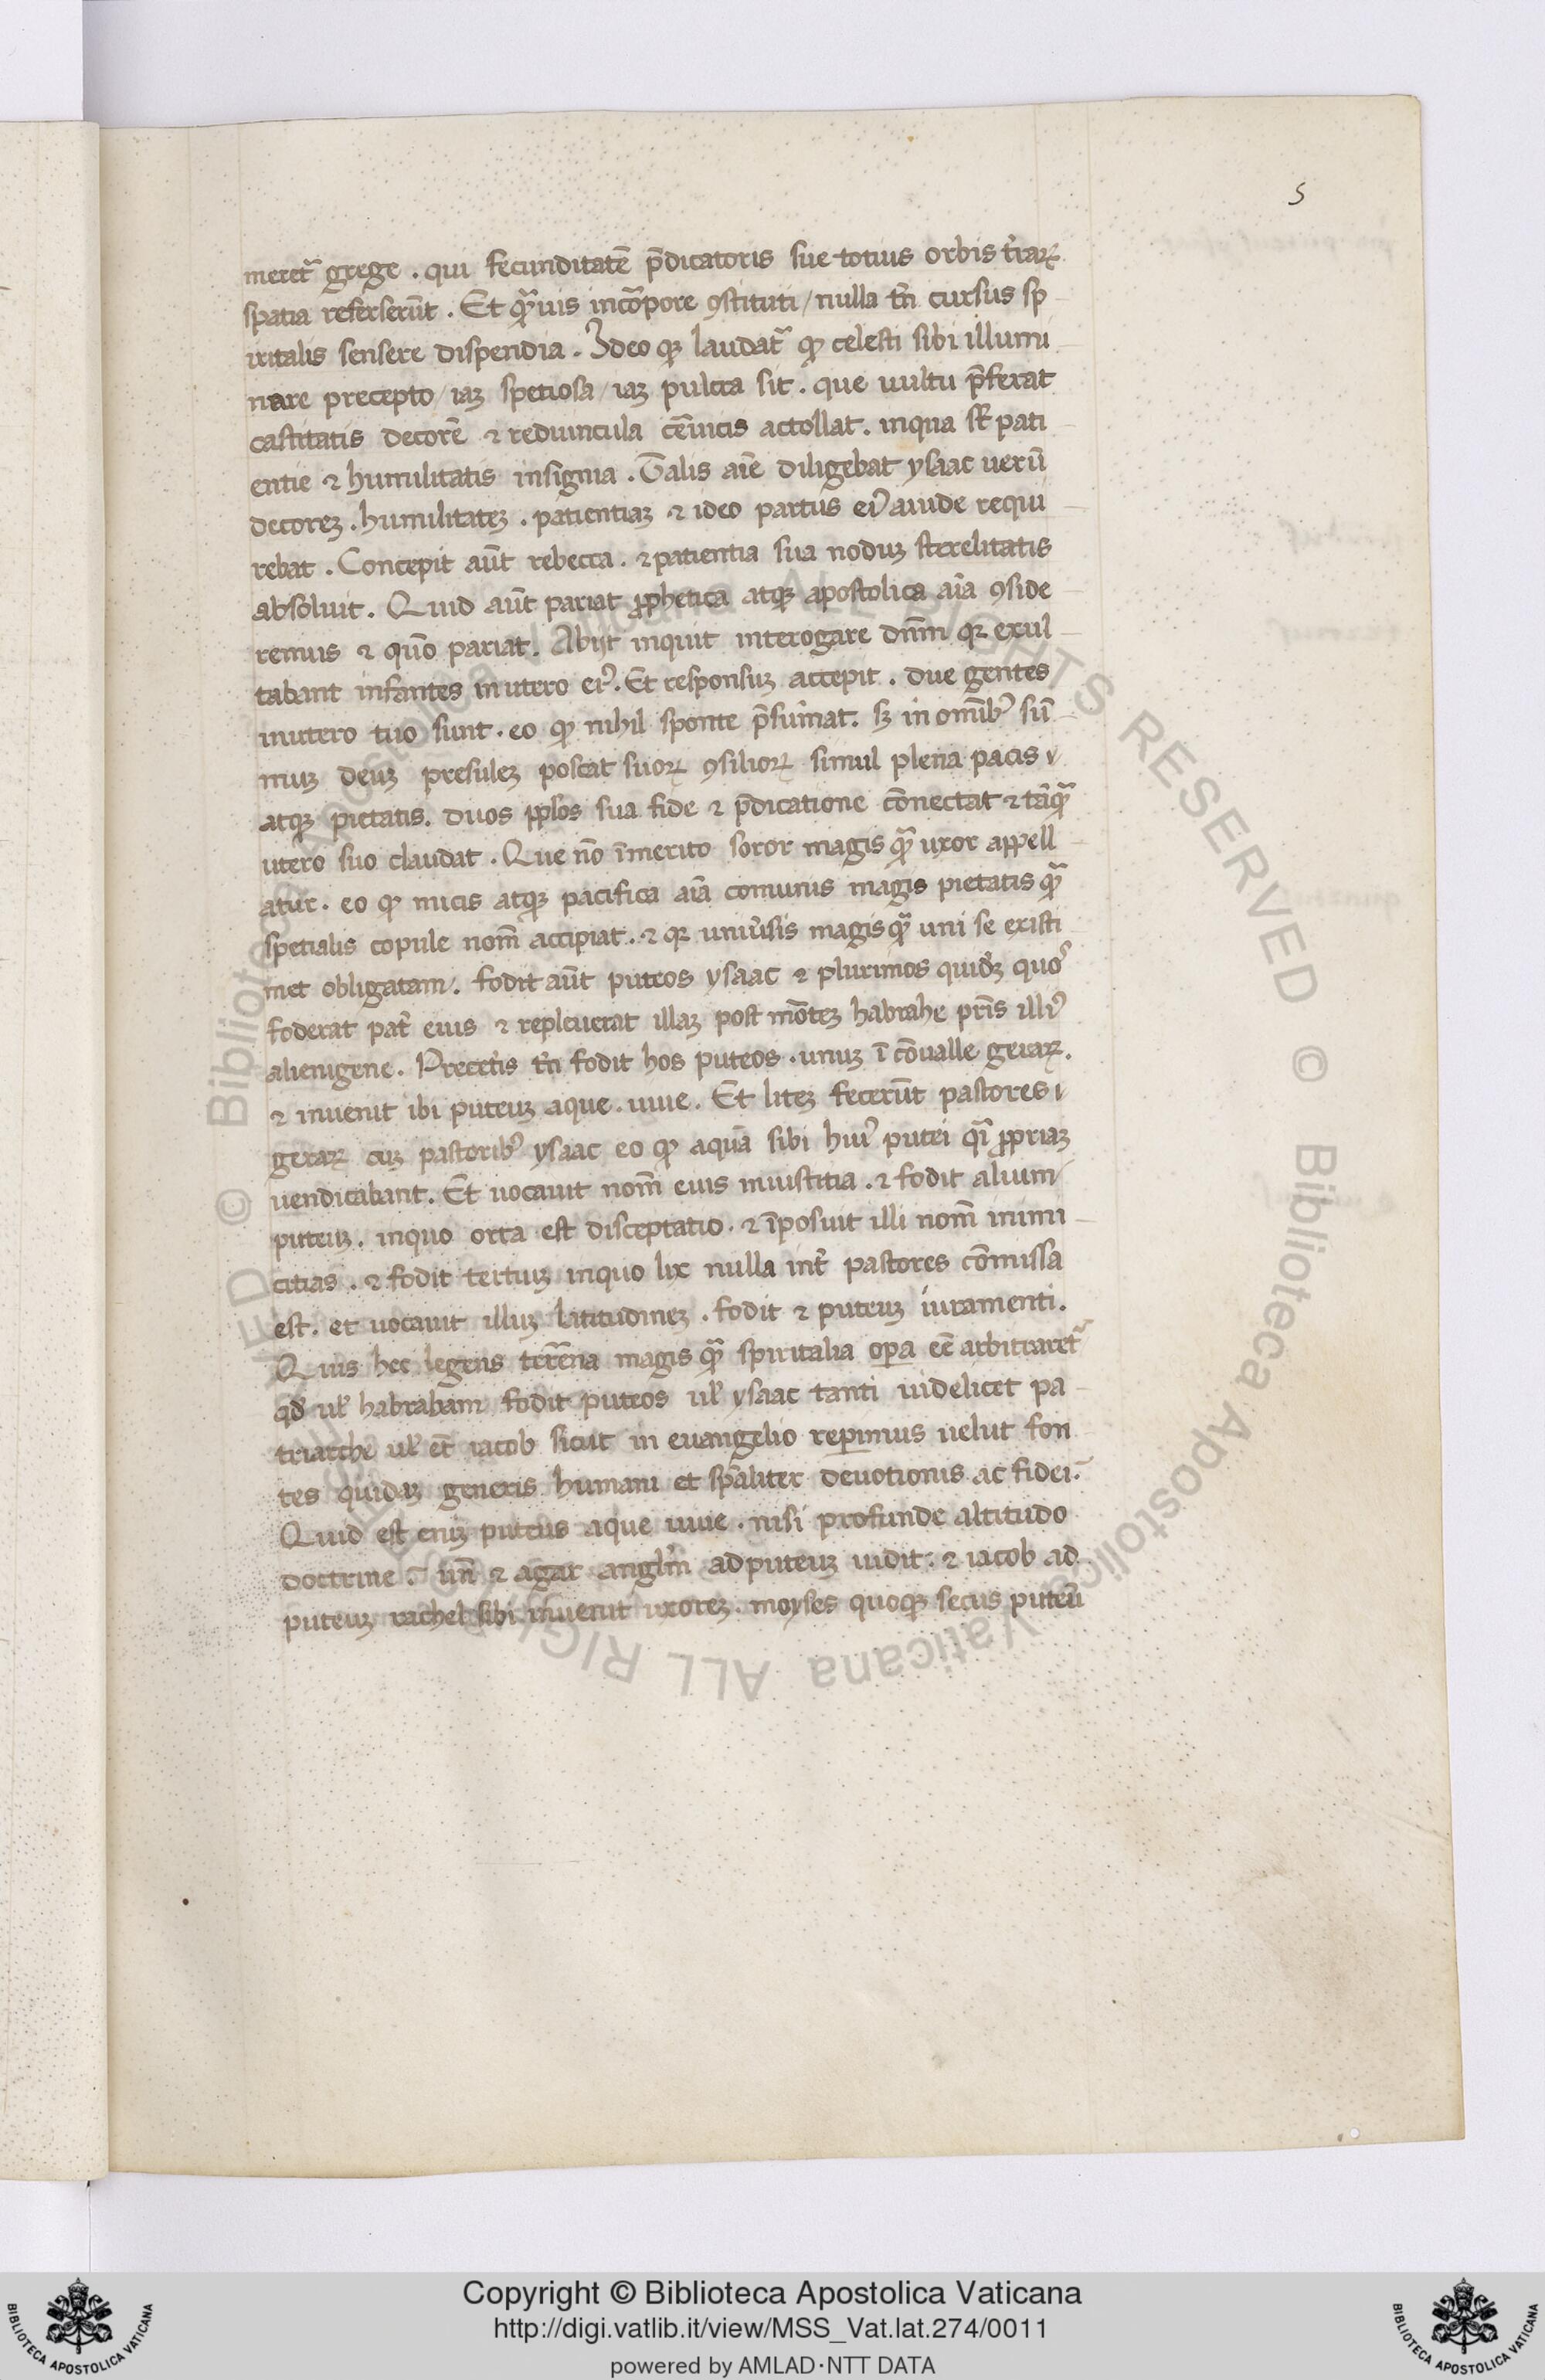 5
meret᷑ grege . qui fecunditatē p̄dicatoris sue totius orbis t̄raꝝ
spatia referserūt . Et qᷓuis incōpore ꝯstituti / nulla tn̄ cursus sp
iritalis sensere dispendia . Ideo qꝫ laudat᷑ qꝫ celesti sibi illumi
nare precepto / iaꝫ spetiosa / iaꝫ pulcra sit . que uultu p̄ferat
castitatis decorē ⁊ redimicula cēuicis actollat . inqua sit pati
entie ⁊ humilitatis insignia . Talis aīe diligebat ysaac uerū
decoreꝫ . humilitateꝫ . patientiaꝫ ⁊ ideo partus eiꝰ auide requi
rebat . Concepit aūt rebecca . ⁊ patientia sua noduꝫ sterelitatis
absoluit . Quid aūt pariat ꝓphetica atqꝫ apostolica aīa ꝯside
remus ⁊ quō pariat . Abijt inquit interogare dn̄m qꝛ exul
tabant infantes inutero eiꝰ . Et responsuꝫ accepit . due gentes
inutero tuo sunt . eo qꝫ nihil sponte p̄sumat . sꝫ in omībꝰ sū
muꝫ deuꝫ presuleꝫ poscat suoꝝ ꝯsilioꝝ simul plena pacis
atqꝫ pietatis . duos pplōs sua fide ⁊ p̄dicatione cōnectat ⁊ tāqᷓ
utero suo claudat . Que nō īmerito soror magis qᷓ uxor appell
atur . eo qꝫ micis atqꝫ pacifica aīa comunis magis pietatis qᷓ
spetialis copule nom̄ accipiat . ⁊ qꝛ uniūsis magis qᷓ uni se existi
met obligatam . fodit aūt puteos ysaac ⁊ plurimos quideꝫ quoˢ
foderat pat̄ eius ⁊ repleuerat illaꝫ post mōteꝫ habrahe pr̄is illiꝰ
alienigene . Precet̄is tn̄ fodit hos puteos . unuꝫ ī cōualle geraꝝ .
⁊ inuenit ibi puteuꝫ aque . uiue . Et liteꝫ fecerūt pastores
geraꝝ cuꝫ pastoribꝰ ysaac eo qꝫ aquā sibi huiꝰ putei qᷓi ꝓpriaꝫ
uendicabant . Et uocauit nom̄ eius iniustitia . ⁊ fodit alium
puteuꝫ . inquo orta est disceptatio . ⁊ īposuit illi nom̄ inimi
citias . ⁊ fodit tertiuꝫ inquo lix nulla int̄ pastores cōmissa
est . et uocauit illuꝫ latitudineꝫ . fodit ⁊ puteuꝫ iuramenti .
Quis hec legens terrēna magis qᷓ spiritalia oꝑa eē arbitraret᷑
qd̄ ul̄ habraham fodit puteos ul̄ ysaac tanti uidelicet pa
triarche ul̄ et̄ iacob sicut in euangelio reꝑimus uelut fon
tes quidaꝫ generis humani et sp̄aliter deuotionis ac fidei .
Quid est eniꝫ puteus aque uiue . nisi profunde altitudo
doctrine . un̄ ⁊ agar angl̄m adputeuꝫ uidit . ⁊ iacob ad
puteuꝫ rachel sibi inuenit uxoreꝫ . moyses quoqꝫ secus puteū
© Biblioteca Apostolica Vaticana ALL RIGHTS RESERVED
Copyright © Biblioteca Apostolica Vaticana
http://digi.vatlib.it/view/MSS_Vat.lat.274/0011
powered by AMLAD·NTT DATA
BIBLIOTECA APOSTOLICA VATICANA
BIBLIOTECA APOSTOLICA VATICANA